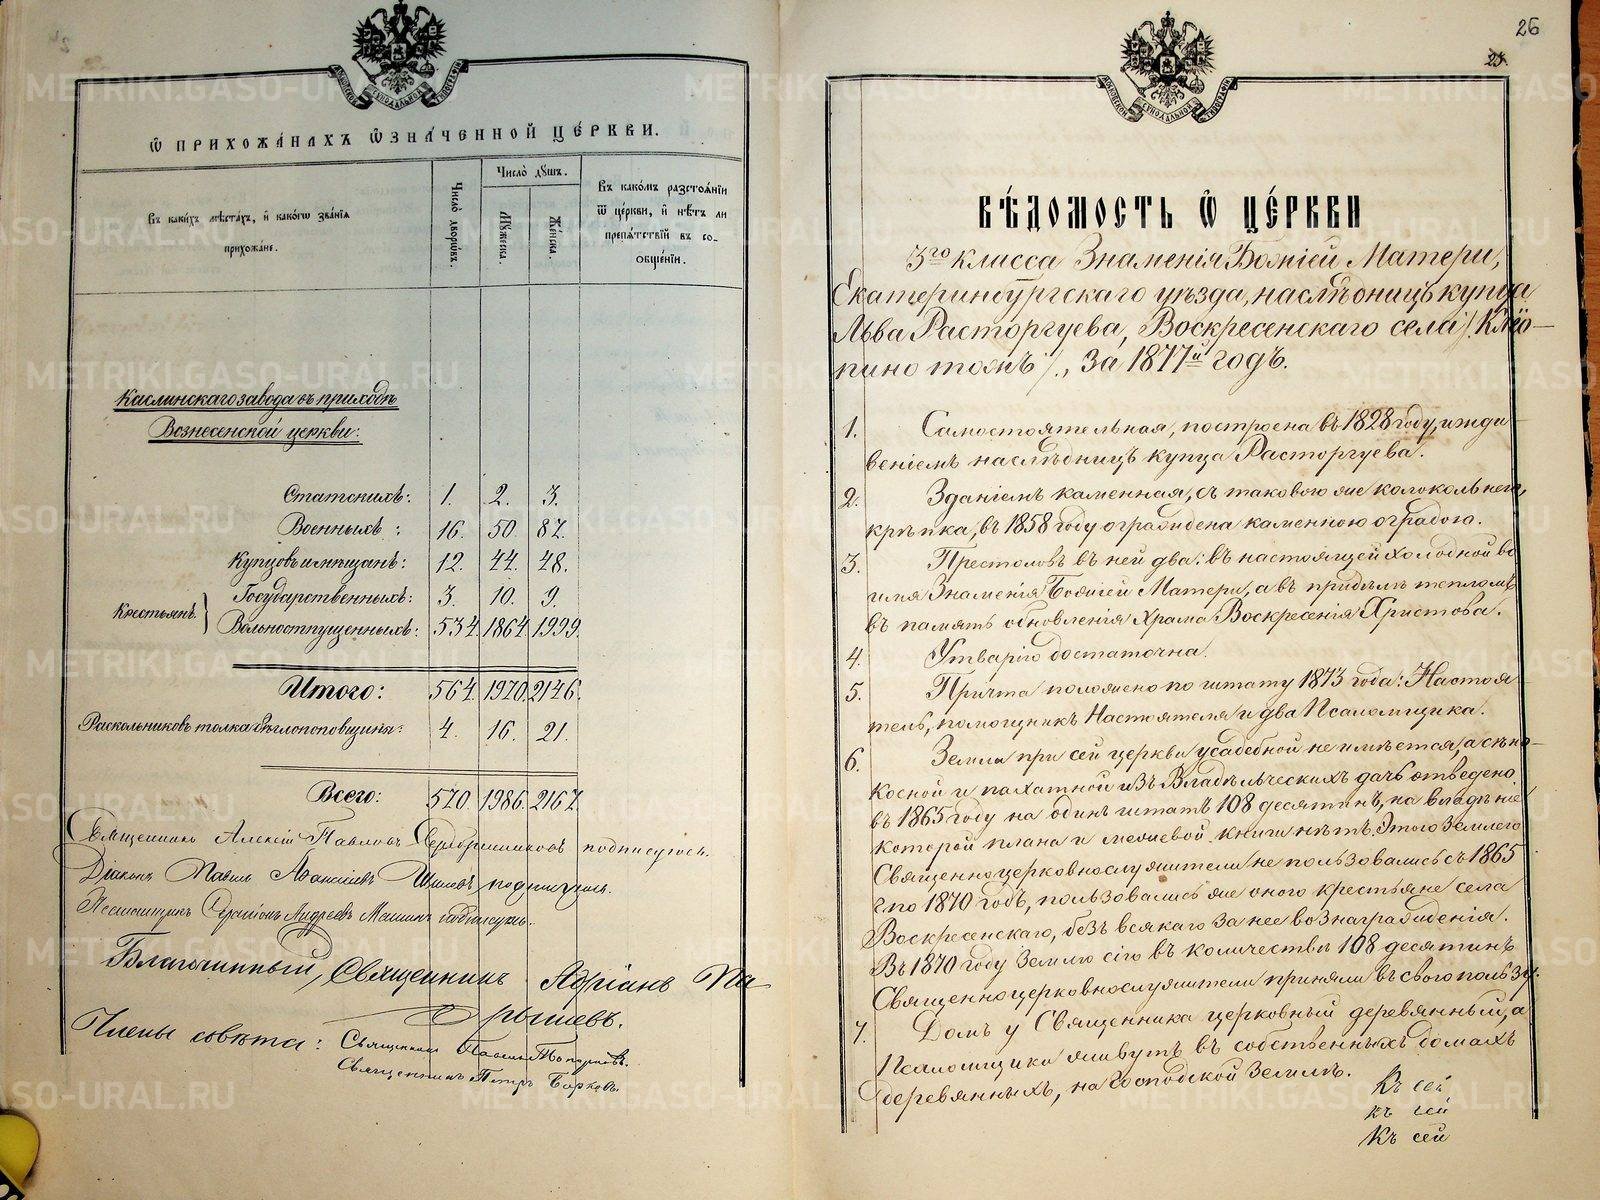 Ѿ ПРИХОЖА́НАХЪ Ѿ́ЗНАЧЕННОЙ ЦЕ́РКВИ.
Въ каки́хъ мѣста́хъ, и҆ како́гѡ зва́нїѧ прихожа́не.
Число̀ дворѡ́въ.
Число̀ дꙋ́шъ.
Мꙋ́жеска.
Же́нска.
Въ како́мъ разстоѧ́нїи
ѿ це́ркви, и҆ нѣ́тъ ли
препѧ́тствїй въ со-
ѻбще́нїи.
Каслинскаго завода въ приходѣ
Вознесенской церкви:
Статскихъ: 1. 2. 3.
Военныхъ: 16. 50. 87.
Купцовъ и мѣщанъ: 12. 44. 48.
Крестьянъ. Государственныхъ: 3. 10. 9.
Вольноотпущенныхъ: 534. 1864. 1999.
Итого: 564. 1970. 2146.
Раскольниковъ толка Бѣглопоповщины: 4. 16. 21.
Всего: 570. 1986. 2167.
Священникъ Алексій Павловъ Серебренниковъ подписуюсь.
Діаконъ Павелъ Шиловъ подписуюсь.
Псаломщикъ Андреевъ подписуюсь.
Благочинный, Священникъ Адріанъ
Члены совѣта: Священникъ Павелъ Топорковъ.
Священникъ Петръ
26
25.
МОСКОВСКОЙ СѴНОДАЛЬНОЙ ТИПОГРАФІИ
ВѢ́ДОМОСТЬ Ѿ ЦЕ́РКВИ
3го класса Знаменія Божіей Матери,
Екатеринбургскаго уѣзда, наслѣдницъ купца
Льва Расторгуева, Воскресенскаго села /. Клёо-
пино тожъ /., за 1877й годъ.
1. Самостоятельная, построена въ 1828 году, ижди-
веніемъ наслѣдницъ купца Расторгуева.
2. Зданіемъ каменная, съ таковою же колокольней,
крѣпка, въ 1858 году ограждена каменною оградою.
3. Престоловъ въ ней два: въ настоящей холодной во
имя Знаменія Божіей Матери, а въ придѣлѣ тепломъ
въ память обновленія Храма Воскресенія Христова.
4. Утварію достаточна.
5. Причта положено по штату 1873 года: Настоя-
тель, помощникъ Настоятеля и два Псаломщика.
6. Земли при сей церкви усадебной не имѣется, а сѣно-
косной и пахатной изъ Владѣльческихъ дачъ отведено
въ 1865 году на одинъ штатъ 108 десятинъ, на владѣніе
которой плана и межевой книги нѣтъ. Этою Землею
Священноцерковнослужители не пользовались съ 1865
г. по 1870 годъ, пользовались же оною крестьяне села
Воскресенскаго, безъ всякаго за нее вознагражденія.
Въ 1870 году Землю сію въ количествѣ 108 десятинъ
Священноцерковнослужители приняли въ свою пользу.
7. Домъ у Священника церковный деревянный, а
Псаломщики живутъ въ собственныхъ домахъ
деревянныхъ, на Господской Землѣ.
Къ сей
къ сей
Къ сей
METRIKI.GASO-URAL.RU